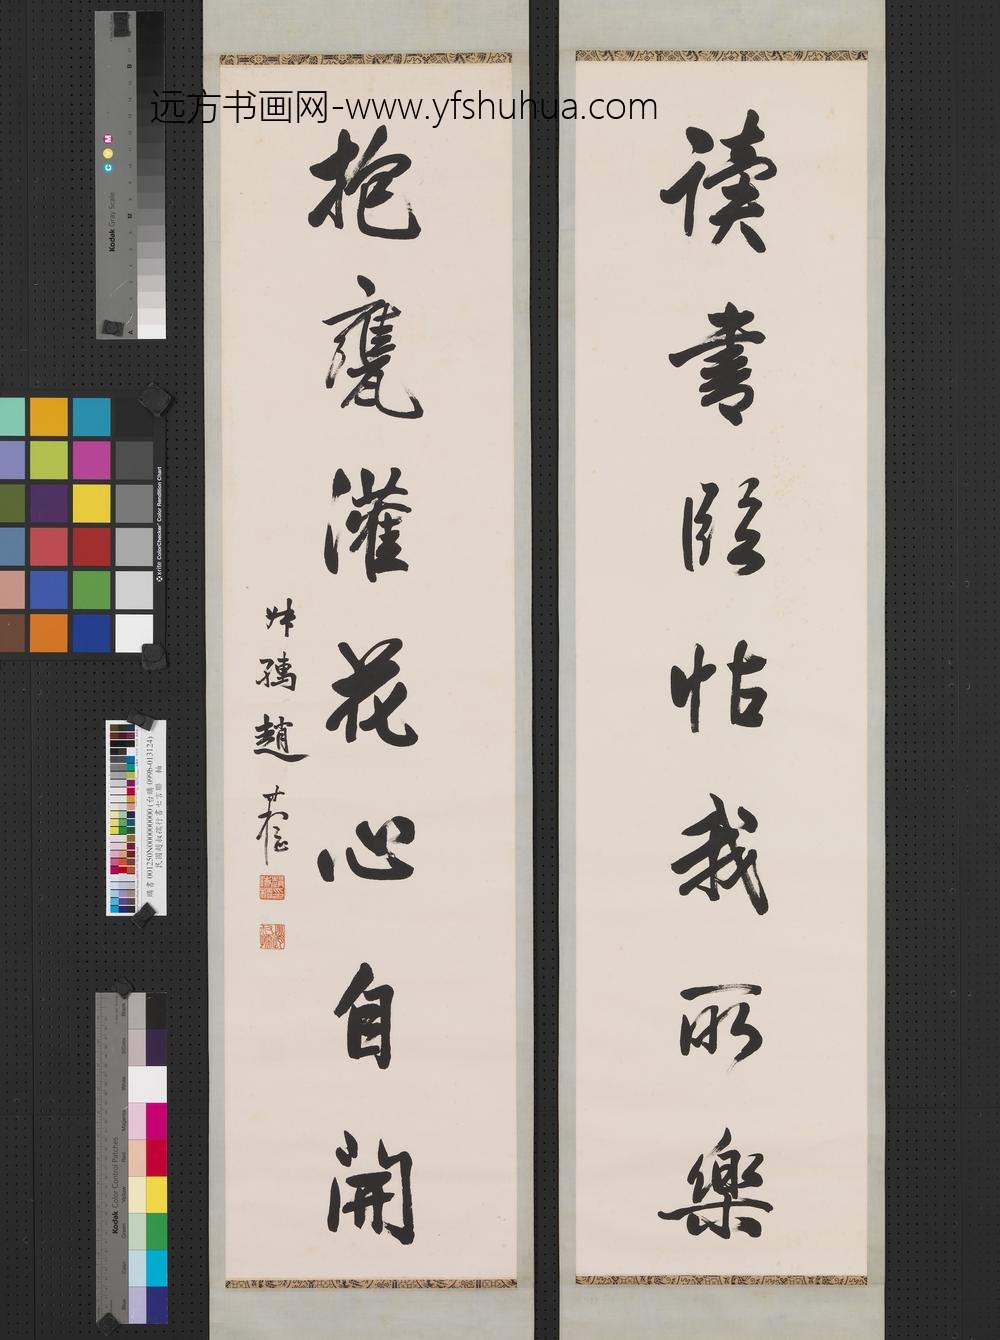 远方书画网-www.yfshuhua.com
读書臨帖我所樂
抱甕灌花心自開
叔孺趙時棡
Kodak Gray Scale
C Y M
A
M
B
x-rite ColorChecker Color Rendition Chart
購書 001250N000000000 (台購 099b-013124)
民國趙叔孺行書七言聯 軸
Kodak Color Control Patches
Blue
Cyan
Green
Yellow
Red
Magenta
White
3/Color
Black